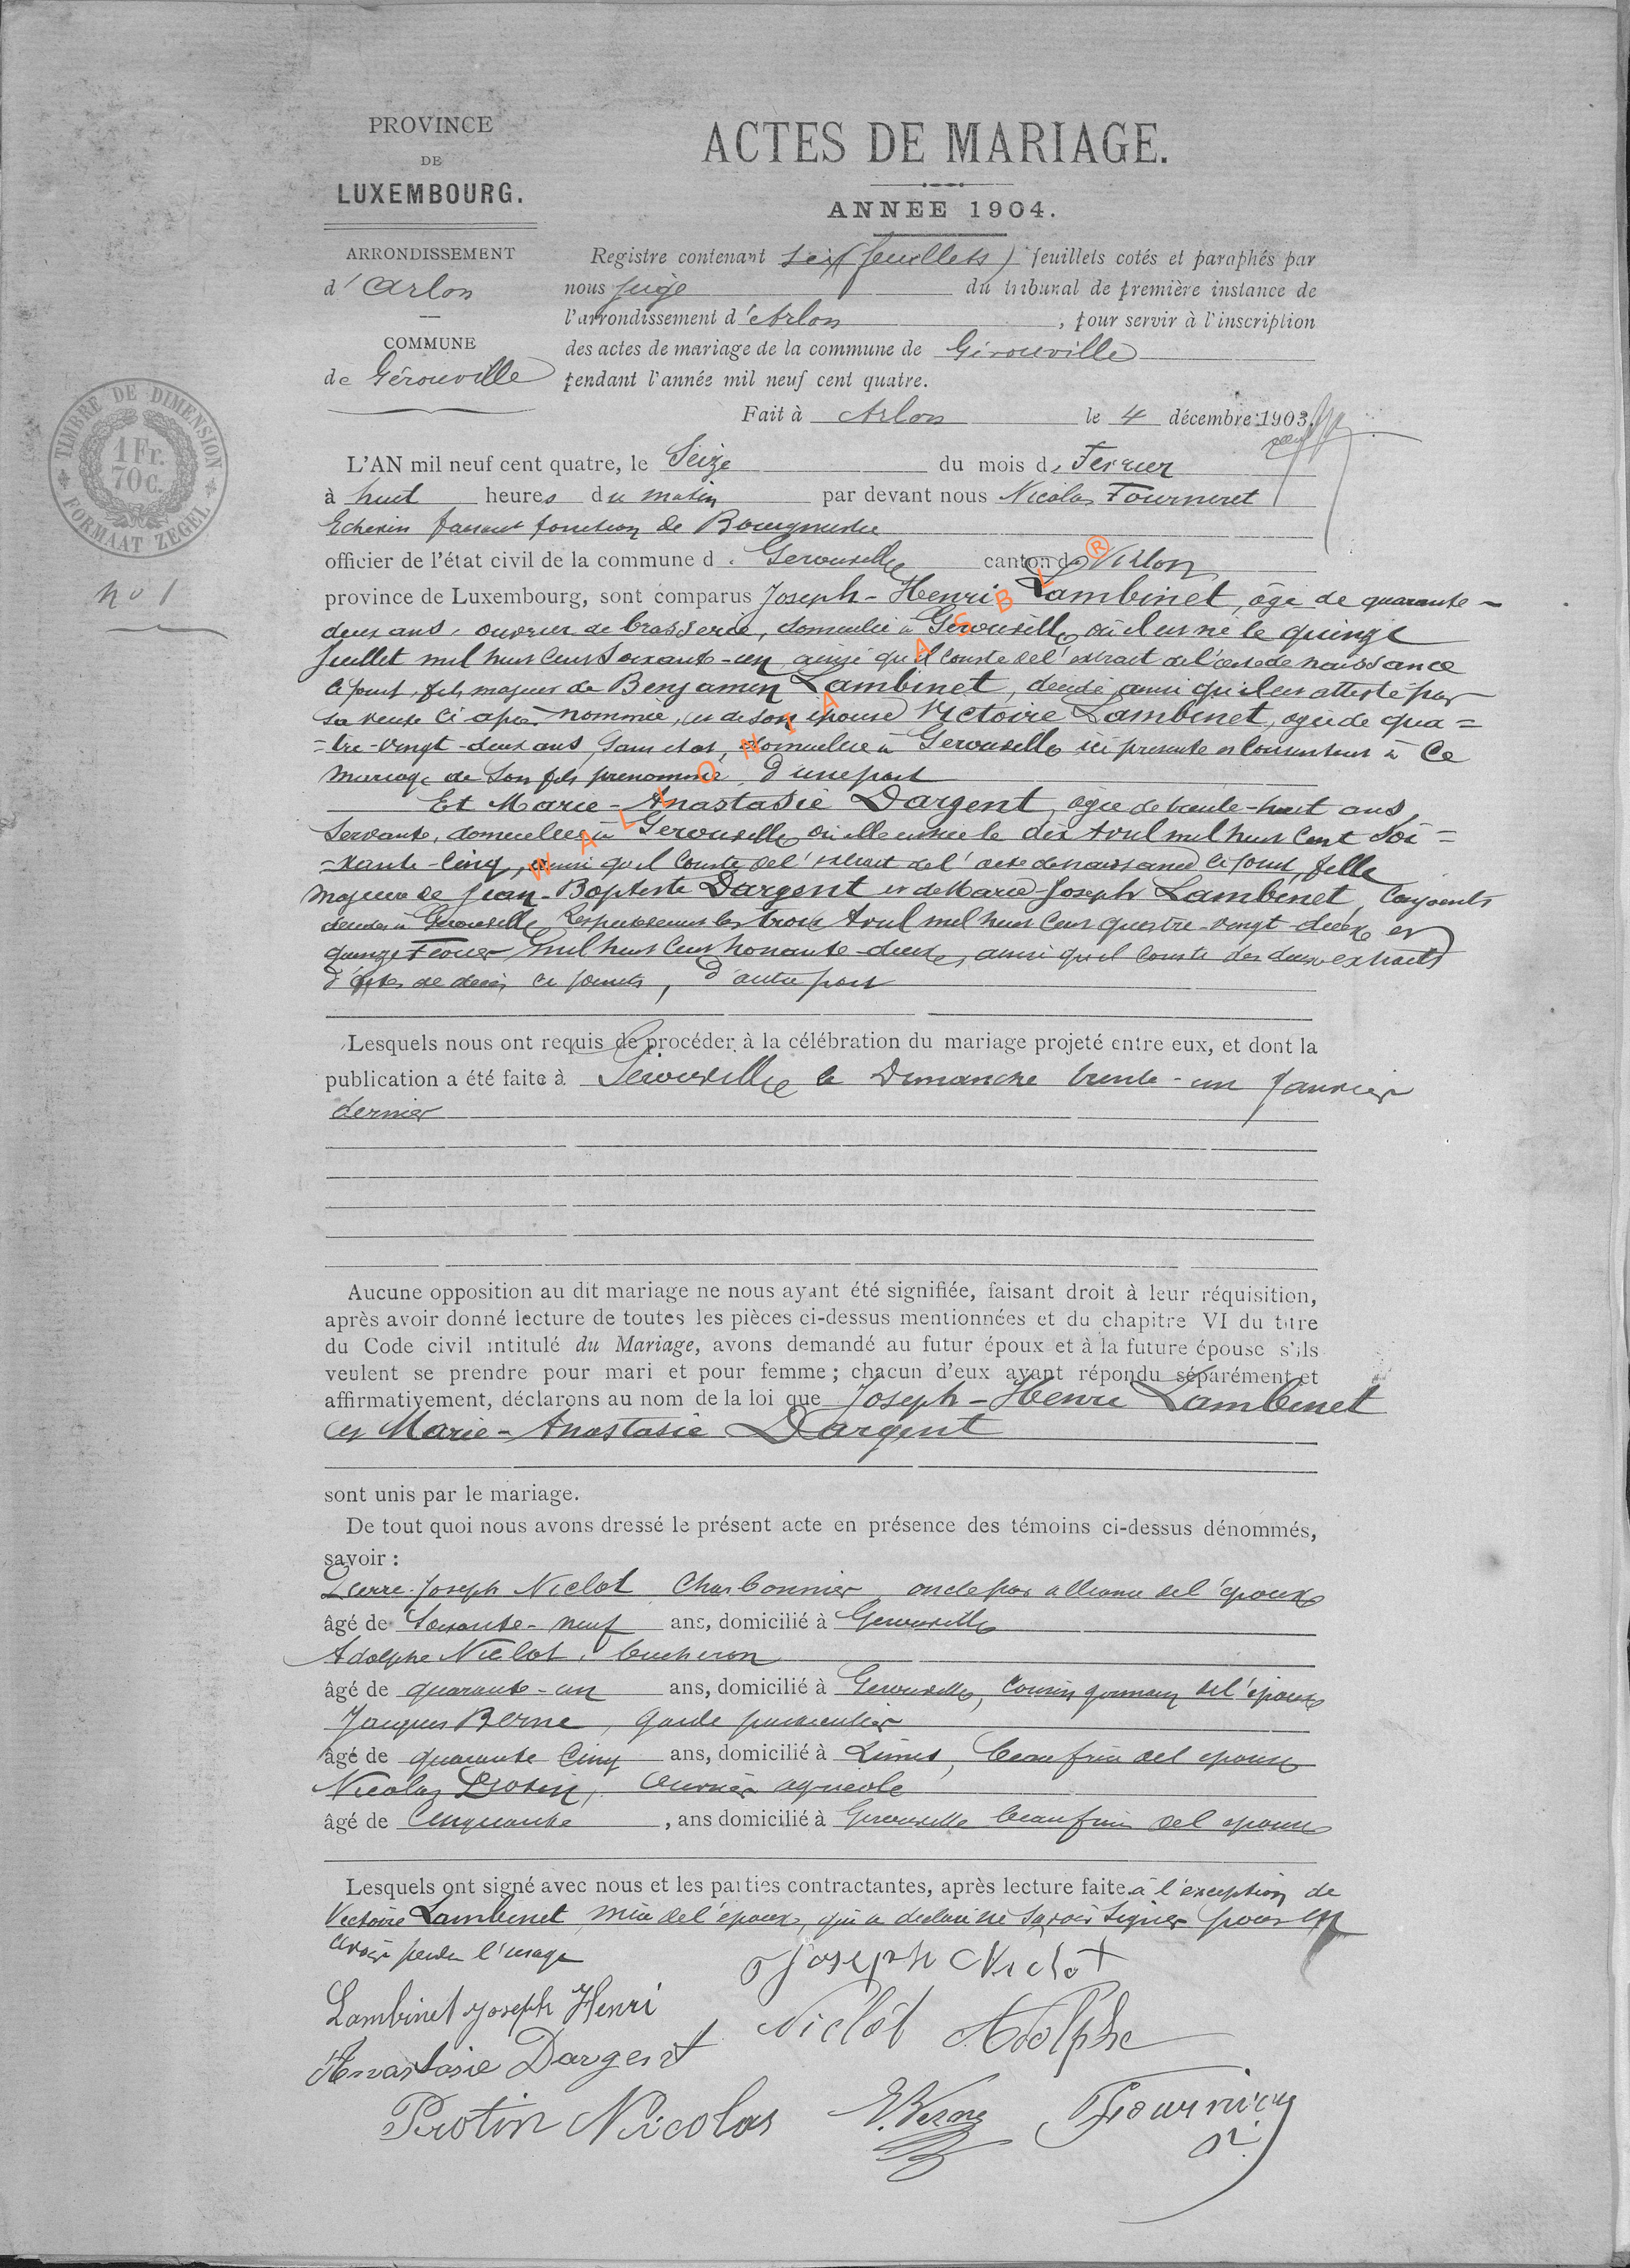 PROVINCE
DE
LUXEMBOURG.
ARRONDISSEMENT
d'Arlon
COMMUNE
de Gérouville
TIMBRE DE DIMENSION
1 Fr.
70 c.
FORMAAT ZEGEL
No 1
ACTES DE MARIAGE.
ANNEE 1904.
Registre contenant six (feuillets) feuillets cotés et paraphés par
nous juge du tribunal de première instance de
l'arrondissement d'Arlon, pour servir à l'inscription
des actes de mariage de la commune de Gérouville
pendant l'année mil neuf cent quatre.
Fait à Arlon le 4 décembre 1903.
L'AN mil neuf cent quatre, le Seize du mois de Fevrier
à huit heures du matin par devant nous Nicolas Fourneret
Echevin faisant fonction de Bourgmestre
officier de l'état civil de la commune d. Gerouville canton de Virton
province de Luxembourg, sont comparus Joseph-Henri Lambinet, âge de quarante-
deux ans, ouvrier de brasserie, domicilié à Gerouville où il est né le quinze
Juillet mil huit cent soixante-un ainsi qu'il conste de l'extrait de l'acte de naissance
ci joint, fils majeur de Benjamin Lambinet, décédé ainsi qu'il est attesté par
sa veuve ci après nommée, et de son épouse Victoire Lambinet, agée de qua=
=tre-vingt-deux ans, sans état, domiciliée à Gerouville ici présente et consentant à ce
mariage de son fils prénommé, d'une part
Et Marie-Anastasie Dargent, agée de trente-huit ans
Servante, domiciliée à Gerouville où elle est née le dix Avril mil huit cent Soi=
=xante-cinq, ainsi qu'il conste de l'extrait de l'acte de naissance ci joint, fille
majeure de Jean-Baptiste Dargent et de Marie-Joseph Lambinet, conjoints
décédés à Gerouville respectivement les trois Avril mil huit cent quatre-vingt-deux et
quinze Fevrier mil huit cent nonante-deux, ainsi qu'il conste des deux extraits
d'actes de décès ci joints, d'autre part
Lesquels nous ont requis de procéder à la célébration du mariage projeté entre eux, et dont la
publication a été faite à Gerouville le Dimanche trente-un Janvier
dernier
Aucune opposition au dit mariage ne nous ayant été signifiée, faisant droit à leur réquisition,
après avoir donné lecture de toutes les pièces ci-dessus mentionnées et du chapitre VI du titre
du Code civil intitulé du Mariage, avons demandé au futur époux et à la future épouse s'ils
veulent se prendre pour mari et pour femme ; chacun d'eux ayant répondu séparément et
affirmativement, déclarons au nom de la loi que Joseph-Henri Lambinet
et Marie-Anastasie Dargent
sont unis par le mariage.
De tout quoi nous avons dressé le présent acte en présence des témoins ci-dessus dénommés,
savoir :
Pierre-Joseph Niclot Charbonnier, oncle par alliance de l'époux
âgé de Soixante-neuf ans, domicilié à Gerouville
Adolphe Niclot, bucheron
âgé de quarante-un ans, domicilié à Gerouville, cousin germain de l'époux
Jacques Berne, garde particulier
âgé de quarante cinq ans, domicilié à Limes, beau frère de l'époux
Nicolas Protin, ouvrier agricole
âgé de Cinquante, ans domicilié à Gerouville beau frère de l'époux
Lesquels ont signé avec nous et les parties contractantes, après lecture faite à l'exception de
Victoire Lambinet mère de l'époux, qui a déclaré ne savoir signer pour en
avoir perdu l'usage
Joseph Niclot
Lambinet Joseph Henri
Niclot Adolphe
Anastasie Dargent
Protin Nicolas
WALLONIA ASBL ®